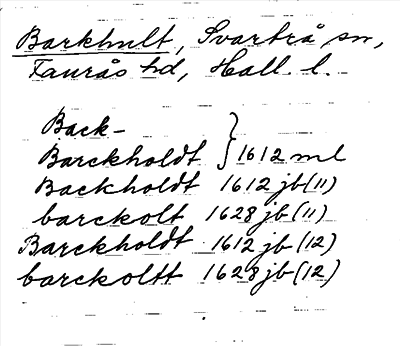 Barkhult, Svartrå sn,
Faurås hd, Hall. l.
Back-
Barckholdt } 1612 ml
Backholdt 1612 jb (11)
barckolt 1628 jb (11)
Barckholdt 1612 jb (12)
barckoltt 1628 jb (12)